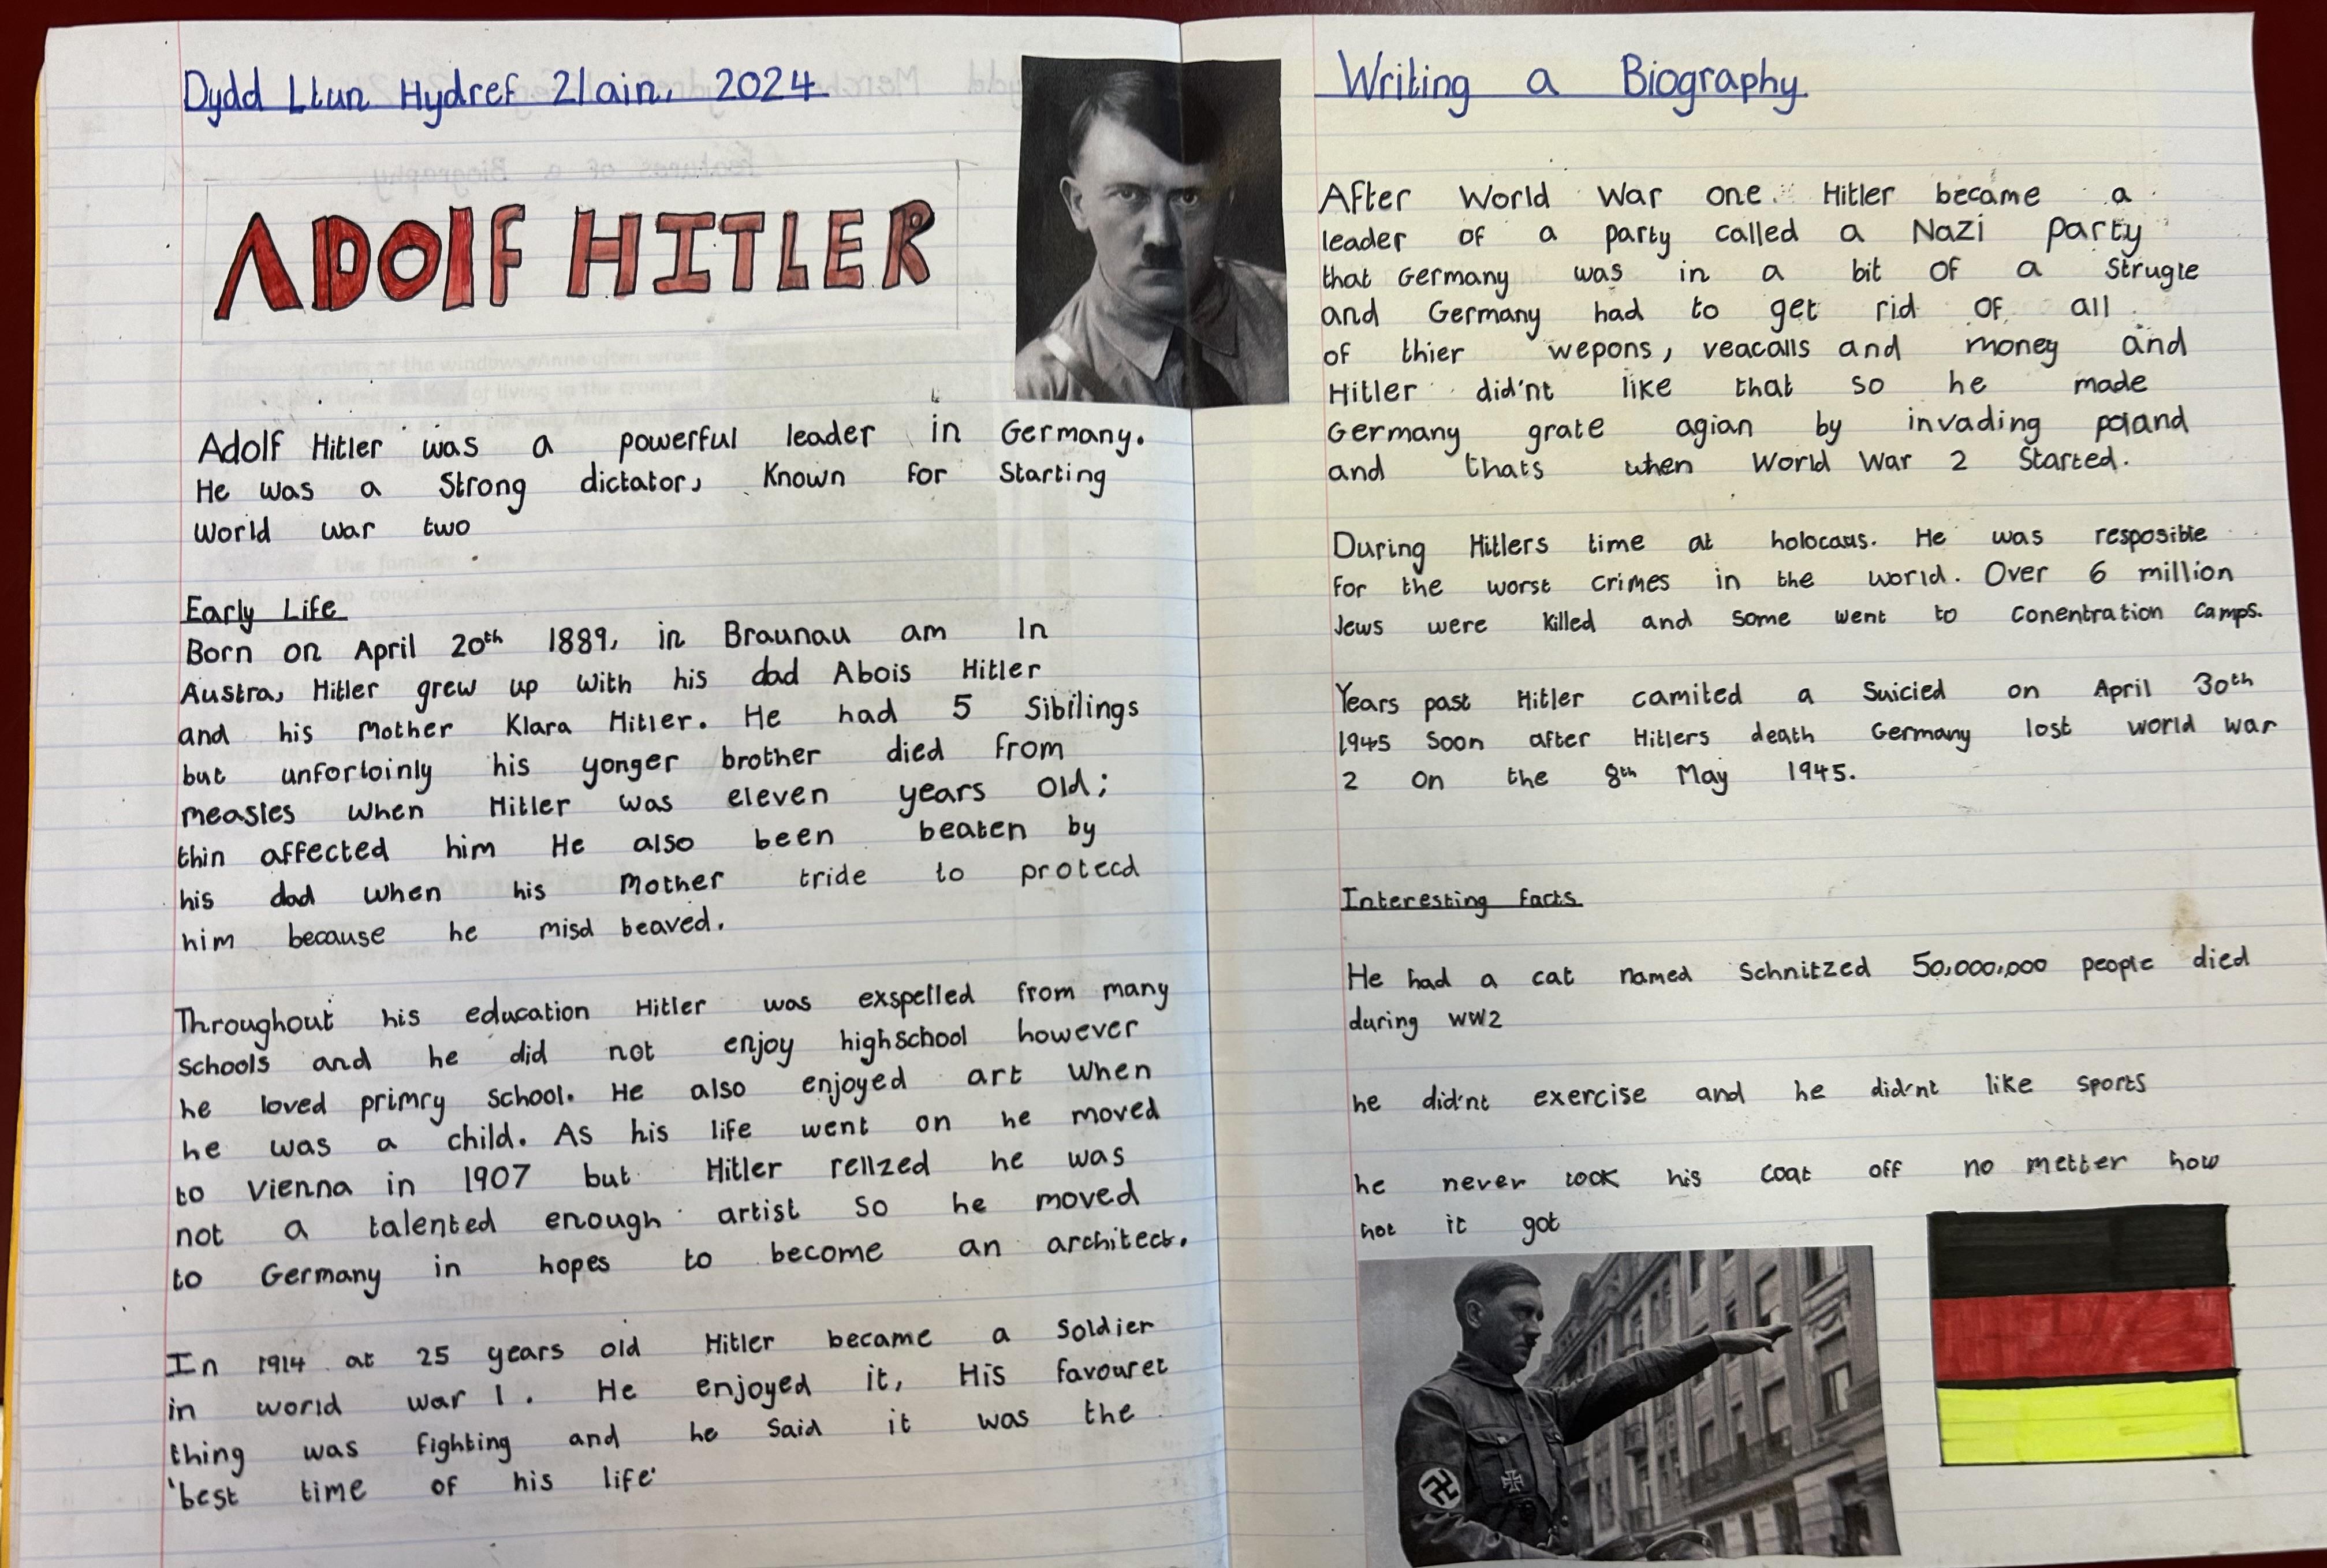 Dydd Llun Hydref 21ain, 2024
ADOLF HITLER
Adolf Hitler was a powerful leader in Germany.
He was a Strong dictator, Known for Starting
World war two
Early Life
Born on April 20th 1889, in Braunau am In
Austra, Hitler grew up with his dad Abois Hitler
and his Mother Klara Hitler. He had 5 Sibilings
but unfortoinly his yonger brother died from
measles when Hitler was eleven years old;
thin affected him He also been beaten by
his dad when his Mother tride to protecd
him because he misd beaved.
Throughout his education Hitler was exspelled from many
Schools and he did not enjoy highschool however
he loved primry School. He also enjoyed art when
he was a child. As his life went on he moved
to Vienna in 1907 but Hitler rellzed he was
not a talented enough artist so he moved
to Germany in hopes to become an architect.
In 1914 at 25 years old Hitler became a Soldier
in world war 1. He enjoyed it, His favouret
thing was fighting and he Said it was the
'best time of his life'
Writing a Biography
After World War one Hitler became a
leader of a party called a Nazi party
that Germany was in a bit of a Strugle
and Germany had to get rid of all
of thier wepons, veacalls and money and
Hitler did'nt like that so he made
Germany grate agian by invading poland
and thats when World War 2 Started.
During Hitlers time at holocaus. He was resposible
for the worst crimes in the world. Over 6 million
Jews were killed and some went to conentration camps.
Years past Hitler camited a Suicied on April 30th
1945 Soon after Hitlers death Germany lost world war
2 on the 8th May 1945.
Interesting facts
He had a cat named Schnitzed 50,000,000 people died
during WW2
he did'nt exercise and he did'nt like sports
he never took his coat off no metter how
hot it got